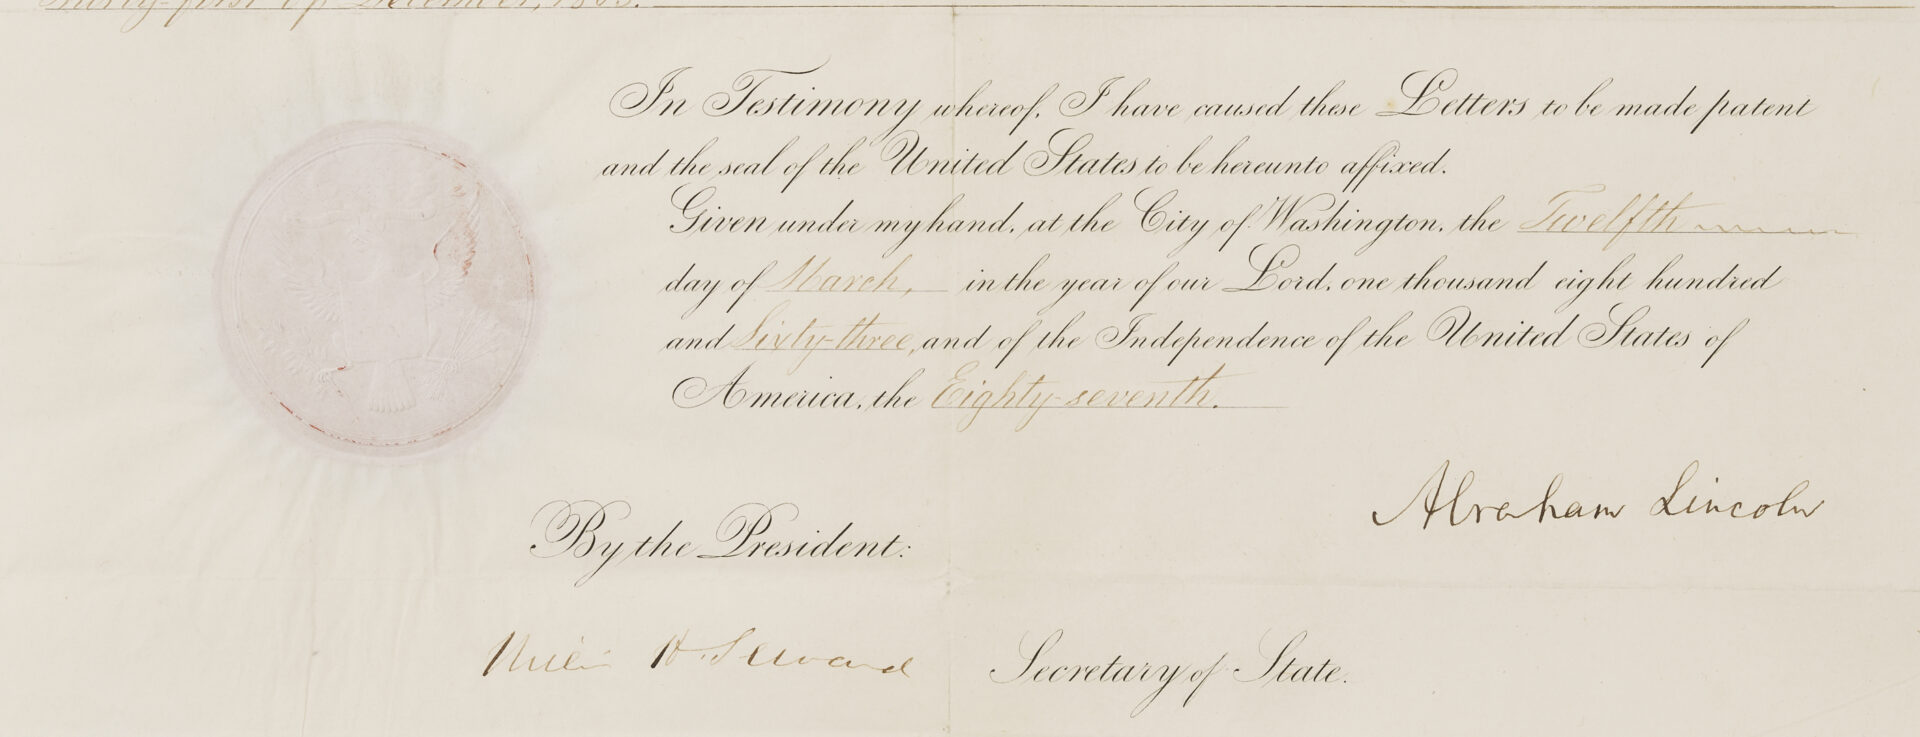 Thirty-first of December, 1863.
In Testimony whereof, I have caused these Letters to be made patent
and the seal of the United States to be hereunto affixed.
Given under my hand, at the City of Washington, the Twelfth
day of March, in the year of our Lord, one thousand eight hundred
and Sixty-three, and of the Independence of the United States of
America, the Eighty-seventh.
Abraham Lincoln
By the President:
William H. Seward Secretary of State.